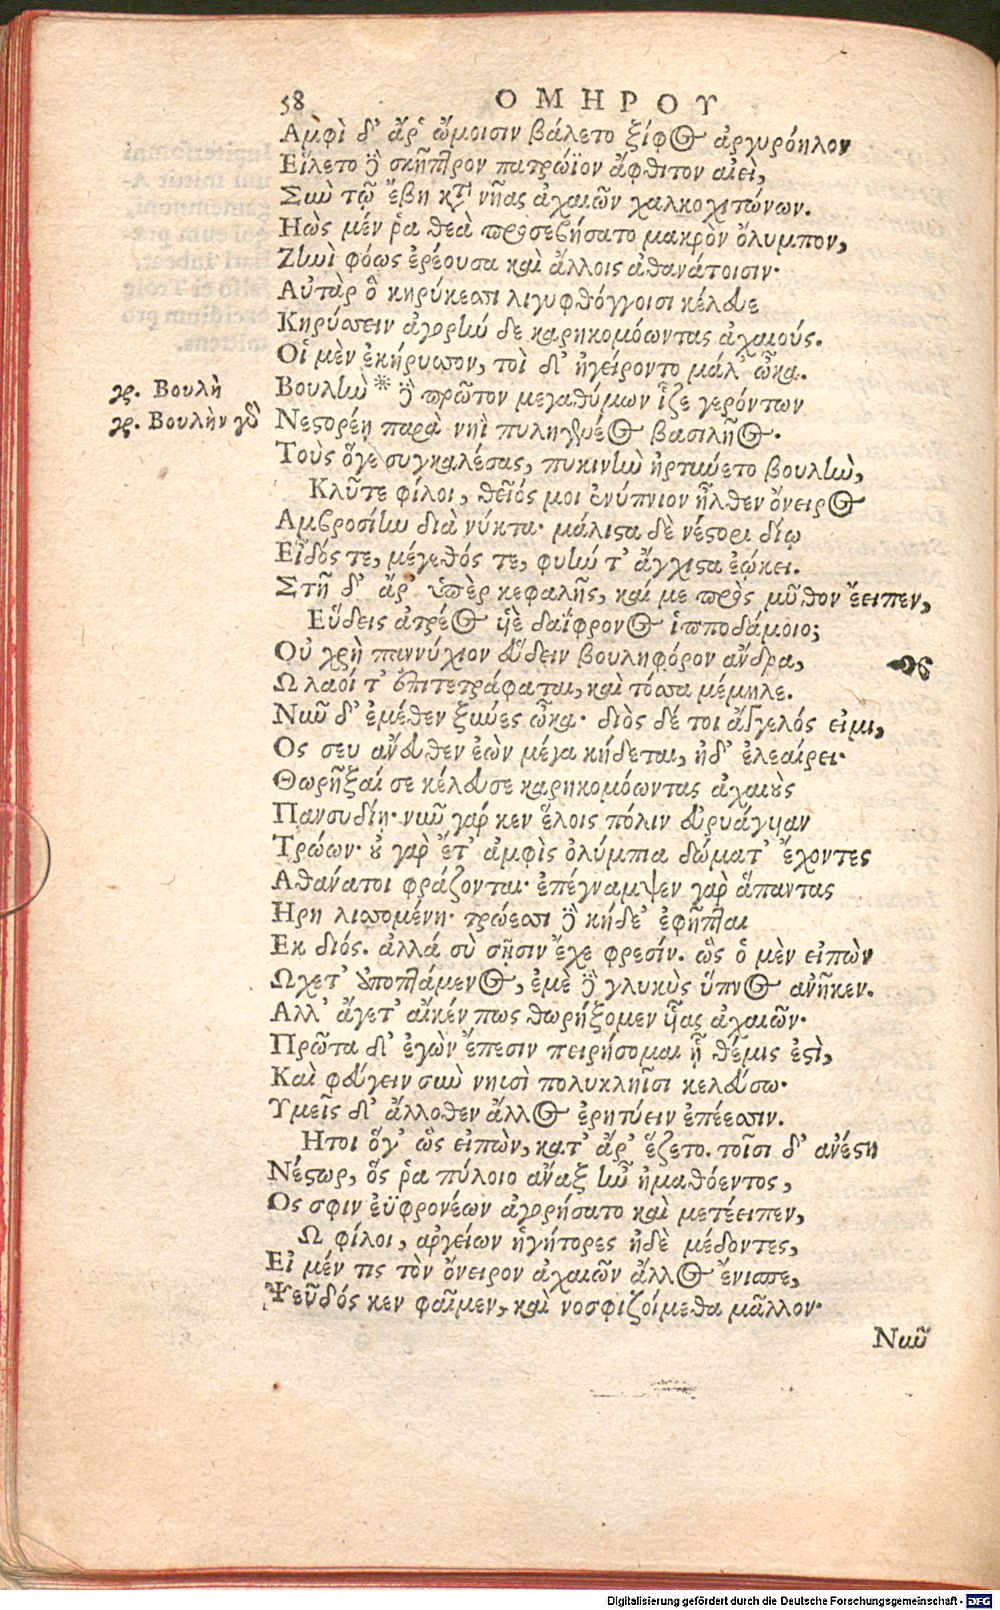 58 ΟΜΗΡΟΥ
Αμφὶ δ' ἄρ' ὤμοισιν βάλετο ξίφος ἀργυρόηλον
Εἵλετο δὲ σκῆπτρον πατρώϊον ἄφθιτον αἰεὶ,
Σὺν τῷ ἔβη κατὰ νῆας ἀχαιῶν χαλκοχιτώνων.
Ηὼς μέν ῥα θεὰ προσεβήσατο μακρὸν ὄλυμπον,
Ζηνὶ φόως ἐρέουσα καὶ ἄλλοις ἀθανάτοισιν·
Αὐτὰρ ὃ κηρύκεσσι λιγυφθόγγοισι κέλευε
Κηρύσσειν ἀγορὴν δε καρηκομόωντας ἀχαιούς.
Οἱ μὲν ἐκήρυσσον, τοὶ δ' ἠγείροντο μάλ' ὦκα.
γρ. Βουλὴ
Βουλὴν * δὲ πρῶτον μεγαθύμων ἷζε γερόντων
γρ. Βουλὴν γὰρ
Νεστορέῃ παρὰ νηῒ πυληγενέος βασιλῆος.
Τοὺς ὅγε συγκαλέσας, πυκινὴν ἠρτύνετο βουλὴν,
Κλῦτε φίλοι, θεῖός μοι ἐνύπνιον ἦλθεν ὄνειρος
Αμβροσίην διὰ νύκτα· μάλιστα δὲ νέστορι δίῳ
Εἶδός τε, μέγεθός τε, φυὴν τ' ἄγχιστα ἐῴκει.
Στῆ δ' ἄρ' ὑπὲρ κεφαλῆς, καί με πρὸς μῦθον ἔειπεν,
Εὕδεις ἀτρέος υἱὲ δαΐφρονος ἱπποδάμοιο;
Οὐ χρὴ παννύχιον εὕδειν βουληφόρον ἄνδρα,
Ω λαοί τ' ἐπιτετράφαται, καὶ τόσσα μέμηλε.
Νῦν δ' ἐμέθεν ξύνες ὦκα· διὸς δέ τοι ἄγγελός εἰμι,
Ος σευ ἄνευθεν ἐὼν μέγα κήδεται, ἠδ' ἐλεαίρει·
Θωρῆξαί σε κέλευσε καρηκομόωντας ἀχαιοὺς
Πανσυδίῃ· νῦν γάρ κεν ἕλοις πόλιν εὐρυάγυιαν
Τρώων· οὐ γὰρ ἔτ' ἀμφὶς ὀλύμπια δώματ' ἔχοντες
Αθανάτοι φράζονται· ἐπέγναμψεν γὰρ ἅπαντας
Ηρη λισσομένη· τρώεσσι δὲ κήδε' ἐφῆπται
Εκ διός. ἀλλά σὺ σῇσιν ἔχε φρεσίν. ὣς ὁ μὲν εἰπὼν
Ωχετ' ἀποπτάμενος, ἐμὲ δὲ γλυκὺς ὕπνος ἀνῆκεν.
Αλλ' ἄγετ' αἴκέν πως θωρήξομεν υἷας ἀχαιῶν·
Πρῶτα δ' ἐγὼν ἔπεσιν πειρήσομαι ἣ θέμις ἐστὶ,
Καὶ φεύγειν σὺν νηυσὶ πολυκληῖσι κελεύσω·
Υμεῖς δ' ἄλλοθεν ἄλλος ἐρητύειν ἐπέεσσιν.
Ητοι ὅγ' ὣς εἰπὼν, κατ' ἄρ' ἕζετο. τοῖσι δ' ἀνέστη
Νέστωρ, ὅς ῥα πύλοιο ἄναξ ἦν ἠμαθόεντος,
Ος σφιν ἐϋφρονέων ἀγορήσατο καὶ μετέειπεν,
Ω φίλοι, ἀργείων ἡγήτορες ἠδὲ μέδοντες,
Εἰ μέν τις τὸν ὄνειρον ἀχαιῶν ἄλλος ἔνισπε,
Ψεῦδός κεν φαῖμεν, καὶ νοσφιζοίμεθα μᾶλλον·
Νῦν
Digitalisierung gefördert durch die Deutsche Forschungsgemeinschaft - DFG